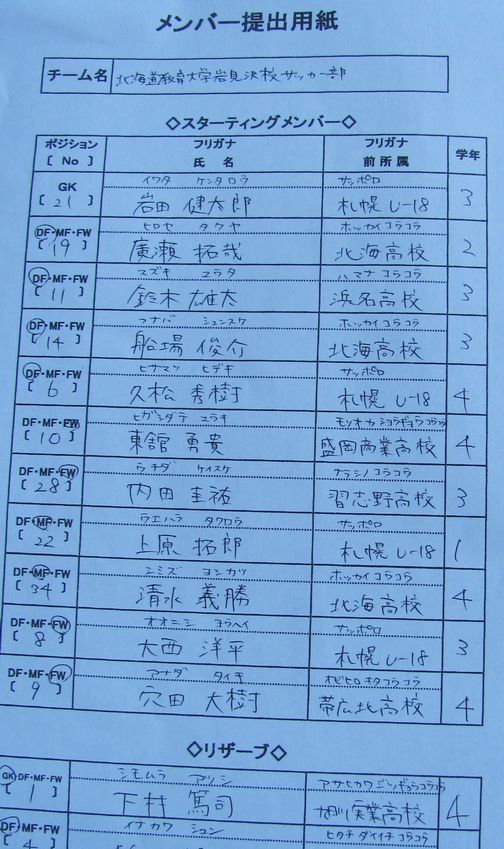 メンバー提出用紙
チーム名 北海道教育大学岩見沢校サッカー部
◇スターティングメンバー◇
ポジション フリガナ フリガナ 学年
[ No ] 氏 名 前所属
GK イワタ ケンタロウ サッポロ
[ 21 ] 岩田 健太郎 札幌 U-18 3
DF・MF・FW ヒロセ タクヤ ホッカイコウコウ
[ 19 ] 廣瀬 拓哉 北海高校 2
DF・MF・FW スズキ ユウタ ハマナコウコウ
[ 11 ] 鈴木 雄太 浜名高校 3
DF・MF・FW フナバ シュンスケ ホッカイコウコウ
[ 14 ] 船場 俊介 北海高校 3
DF・MF・FW ヒサマツ ヒデキ サッポロ
[ 6 ] 久松 秀樹 札幌 U-18 4
DF・MF・FW ヒガシダテ ユウキ モリオカショウギョウコウコウ
[ 10 ] 東舘 勇貴 盛岡商業高校 4
DF・MF・FW ウチダ ケイスケ ナラシノコウコウ
[ 28 ] 内田 圭祐 習志野高校 3
DF・MF・FW ウエハラ タクロウ サッポロ
[ 22 ] 上原 拓郎 札幌 U-18 1
DF・MF・FW シミズ ヨシカツ ホッカイコウコウ
[ 34 ] 清水 義勝 北海高校 4
DF・MF・FW オオニシ ヨウヘイ サッポロ
[ 8 ] 大西 洋平 札幌 U-18 3
DF・MF・FW アナダ タイキ オビヒロキタコウコウ
[ 9 ] 穴田 大樹 帯広北高校 4
◇リザーブ◇
GK・DF・MF・FW シモムラ アツシ アサヒカワジツギョウコウコウ
[ 1 ] 下村 篤司 旭川実業高校 4
DF・MF・FW イナカワ シュン ヒタチダイイチコウコウ
[ 4 ]